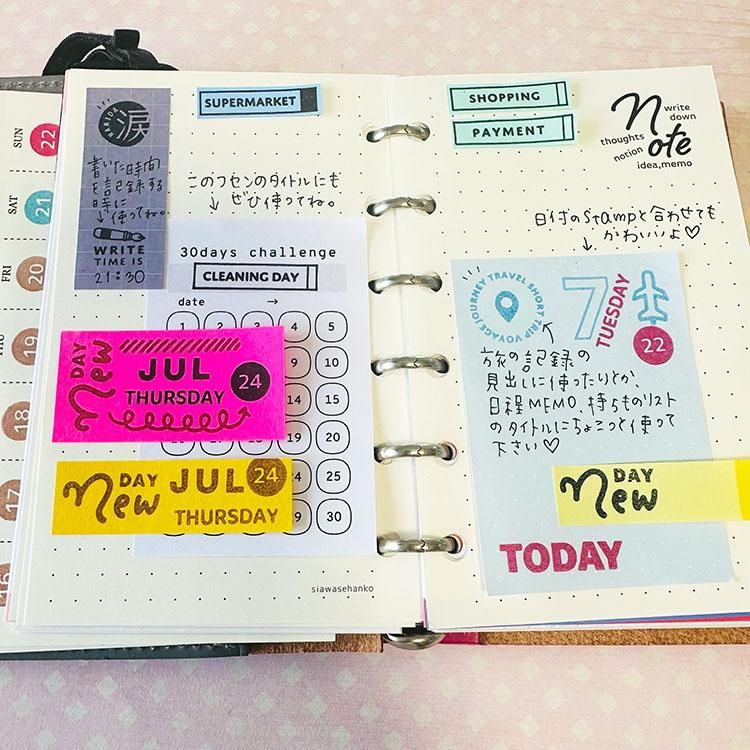 SUN 22
SAT 21
FRI 20
19
18
17
16
涙
書いた時間
を記録する
時に
↓使ってね。
WRITE
TIME IS
21:30
SUPERMARKET
このフセンのタイトルにも
↓ ぜひ使ってね。
30days challenge
CLEANING DAY
date →
1 2 3 4 5
10
15
20
25
30
new DAY
JUL
THURSDAY
24
new DAY
JUL
24
THURSDAY
siawasehanko
SHOPPING
PAYMENT
note
write
down
thoughts
notion
idea,memo
日付のstampと合わせても
↓ かわいいよ♡
VOYAGE JOURNEY TRAVEL SHORT TRIP
7
TUESDAY
22
旅の記録の
見出しに使ったりとか、
日程MEMO、持ちものリスト
のタイトルにちょこっと使って
下さい♡
new DAY
TODAY